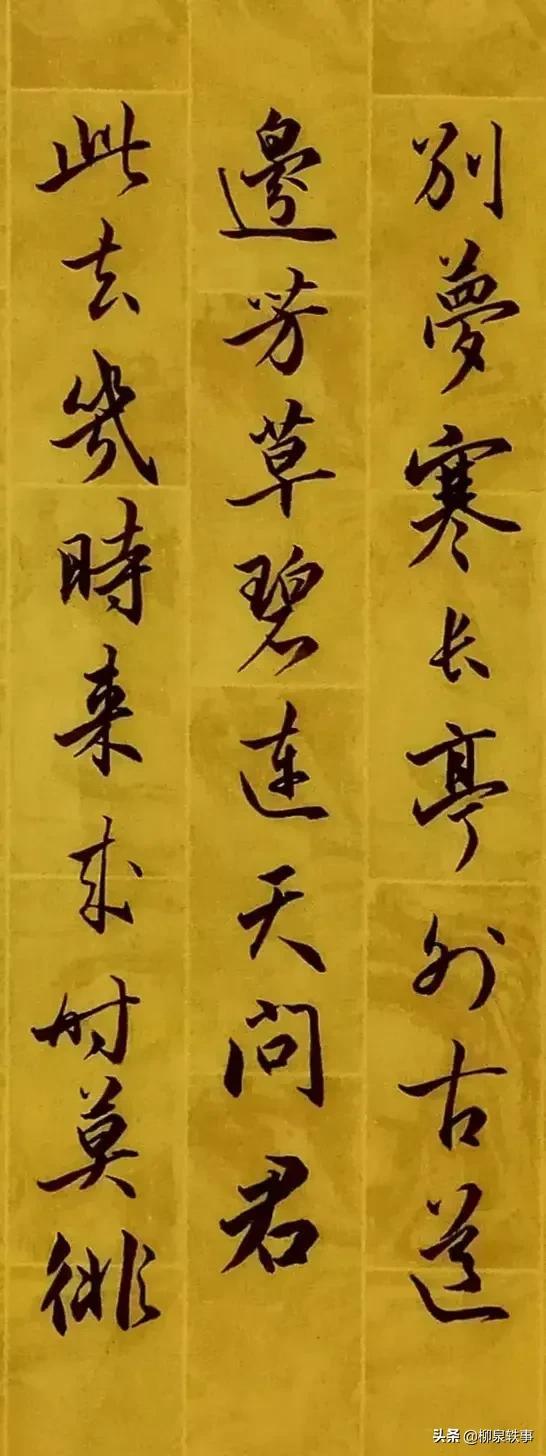 別夢寒长亭外古道
邊芳草碧連天問君
此去幾時來来时莫徘
头条 @柳泉轶事